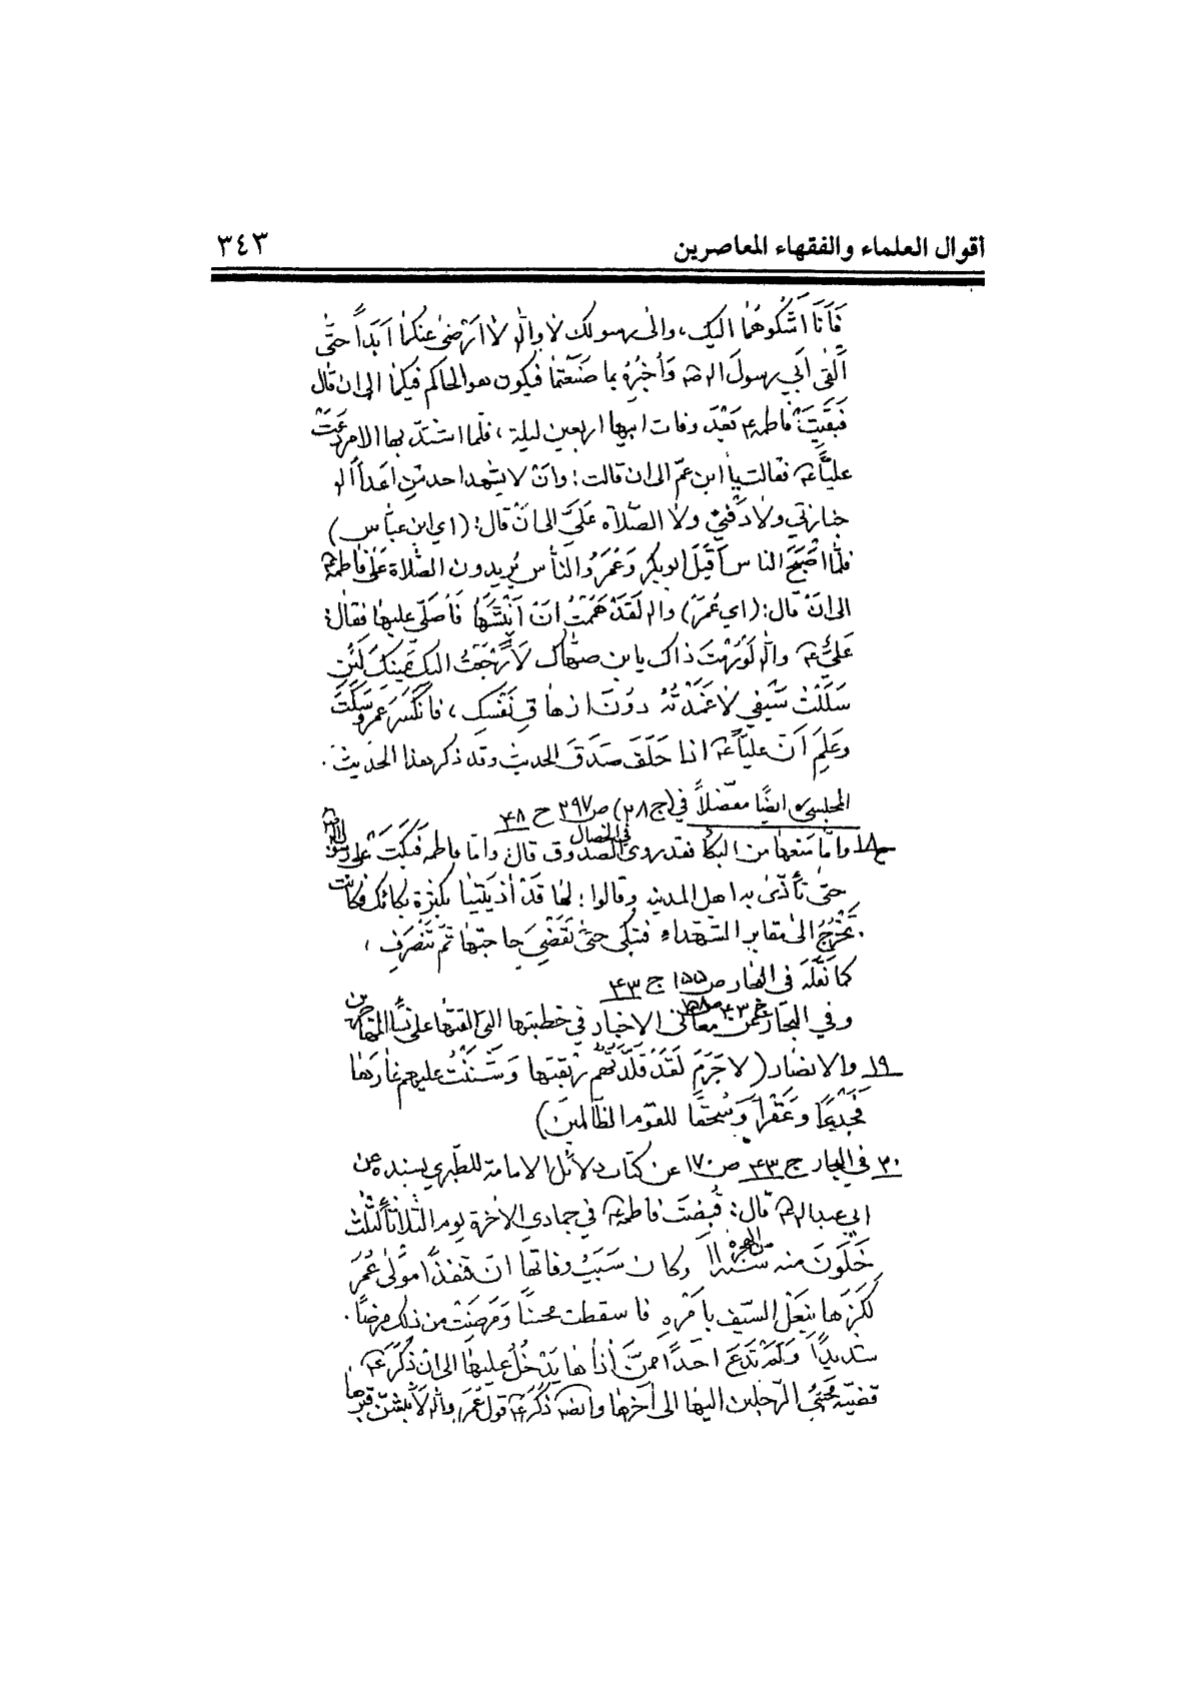 أقوال العلماء والفقهاء المعاصرين ٣٤٣
فَأَنَا اَشْكُوهُمٰا اليك، والىٰ رسولك لاٰ والله لاٰ اَرْضىٰ عنكمٰا اَبَداً حتّٰى
اَلْقىٰ اَبي رسولَ الله وَاُخْبِرُهُ بما صَنَعْتُمٰا فيكون هو الحاكم فيكمٰا الى ان قال
فَبَقِيَتْ فاطمه ع بَعْدَ وفات ابيها اربعين ليلة، فلما اشتدّ بها الامر دَعَتْ
عليّاً ع فقالت يا ابن عمّ الى ان قالت: وانْ لا يشهد احد مِن اَعداٰ الله
جنازتي ولا دَفْني ولاٰ الصّلاٰه عَلَيَّ الى انْ قال: (اي ابن عبّاس)
فلمّٰا اَصْبَحَ الناس اَقْبَلَ ابوبكر وَعُمَرُ والنّاس يُريدون الصّلاٰة عَلىٰ فاطمه ع
الى انْ قال: (اي عُمَرُ) والله لَقَدْ هَمَمْتُ انْ اَنْبُشَهٰا فَاُصَلّي عليهٰا فقال:
عَلِيٌّ ع والله لَوْ رُمْتَ ذاك يا بن صهّاك لاَرْجَعْتُ اليك يمينك لَئِن
سَلَلْتُ سَيْفي لاٰ غَمَدْتُهُ دوُنَ ازهاٰقِ نَفْسِك، فَانْكَسَرَ عمر وسَكَتَ
وعَلِمَ اَنّ عليّاً ع اذا حَلَفَ صَدَقَ الحديث وقد ذكر هذا الحديث.
المجلسي ايضًا مفصّلاً في (ج ٢٨) ص ٢٩٧ ح ٤٨
١٨ وامّا مَنعهاٰ من البكاٰ فقد روى الصّدوق في الخصال قال وامّا فاطمه فَبَكَتْ عَلىٰ رسول الله
حتىٰ تأذّىٰ به اهل المدينه وقالوا: لهٰا قَدْ اذَيْتِنٰا بكثرة بكائك فكانت
تَخْرُجُ الىٰ مقابر الشّهداء فتبكي حتىٰ تَقْضِيَ حاجتهٰا ثمّ تَنْصَرِف،
كمٰا نَقَلَهُ في البحار ص ١٥٥ ج ٤٣
وفي البحار ج ٤٣ ص ١٥٨ عن معاني الاخبار في خطبتها التي القتهٰا على نسٰاٰ المهٰاجرين
١٩ والانصٰار (لا جَرَمَ لَقَدْ قَلَّدْتُهُم رِبْقَتَهٰا وَشَنَنْتُ عليهم غٰارَهٰا
فَجَدْعًا وعَقْراً وَسُحْقًا للقَوْمِ الظّٰالمينَ)
٢٠ في البحار ج ٤٣ ص ١٧٠ عن كتاب دلائل الامامة للطّبري بسنده عن
ابي عبد الله ع قال: قُبِضَتْ فاطمه ع في جمادي الاٰخرة يوم الثّلاثٰاٰ لثلث
خَلَوْنَ منه سَنَه ١١ من الهجره وكان سَبَبُ وفاتها انّ قنفذًا مَوْلىٰ عُمَرَ
لَكَزَها بِنَعْلِ السّيف بِاَمْرِهِ فاسقطت محسنًا وَمَرِضَتْ من ذٰلك مرضًا.
شديدًا وَلَمْ تَدَعْ احَدًا ممّن اٰذٰاهٰا يَدْخُلُ عليهٰا الى ان ذَكَرَ ع
قضيّة مجيئ الرّجلين اليهٰا الى اٰخرهٰا وايضًا ذَكَرَ ع قول عُمَرَ والله لاَنْبُشَنّ قبرها